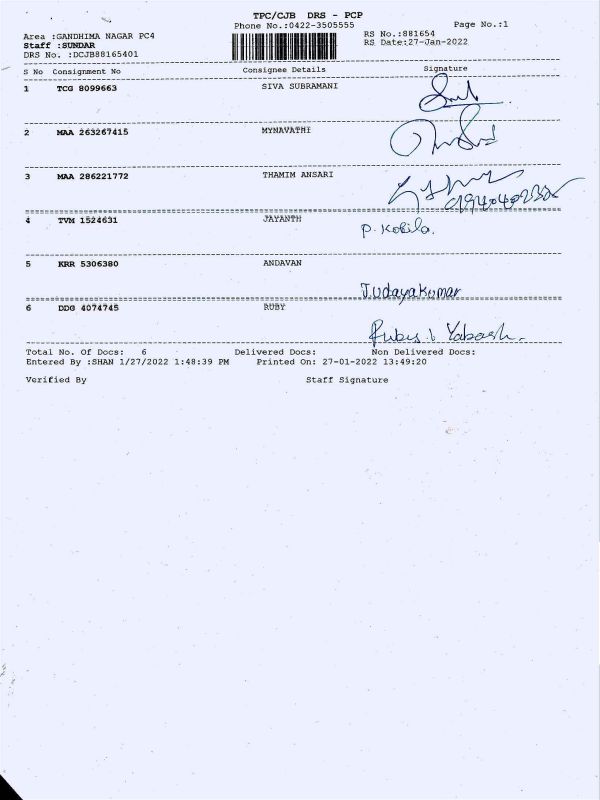 TPC/CJB DRS - PCP
Phone No.:0422-3505555 Page No.:1
Area :GANDHIMA NAGAR PC4 RS No.:881654
Staff :SUNDAR RS Date:27-Jan-2022
DRS No. :DCJB88165401
S No Consignment No Consignee Details Signature
1 TCG 8099663 SIVA SUBRAMANI
2 MAA 263267415 MYNAVATHI
3 MAA 286221772 THAMIM ANSARI
4 TVM 1524631 JAYANTH
P. Kokila.
5 KRR 5306380 ANDAVAN
J.Udayakumar
6 DDG 4074745 RUBY
Total No. Of Docs: 6 Delivered Docs: Non Delivered Docs:
Entered By :SHAN 1/27/2022 1:48:39 PM Printed On: 27-01-2022 13:49:20
Verified By Staff Signature